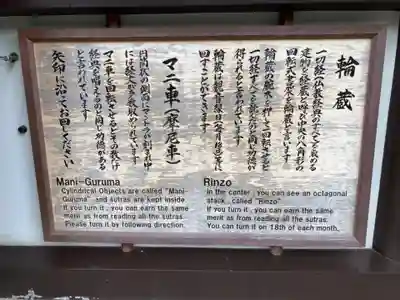 輪蔵
一切経(仏教経典のすべて)を収める
建物を経蔵と呼び中央の八角形の
回転式書架を輪蔵と言います
輪蔵の腕木を押して回転させると
一切経を読むのと同じ功徳が
得られると言われています
輪蔵は観音縁日(毎月18日)に
回すことができます
マニ車(摩尼車)
円筒状の側面にマントラが刻まれ中
には経文が収められています
マニ車を回転させるとその数だけ
経典を唱えるのと同じ功徳がある
と言われています
矢印に沿ってお回しください
Mani-Guruma
Cylindrical Objects are called "Mani-
Guruma" and sutras are kept inside
If you turn it, you can earn the same
merit as from reading all the sutras.
Please turn it by following direction.
Rinzo
In the center, you can see an octagonal
stack, called "Rinzo"
If you turn it, you can earn the same
merit as from reading all the sutras.
You can turn it on 18th of each month.